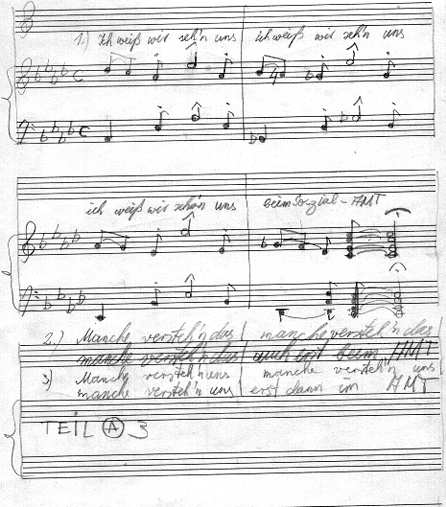 1.) Ich weiß wir seh'n uns ich weiß wir seh'n uns
ich weiß wir seh'n uns beim Sozial-AMT
2.) Manche versteh'n das manche versteh'n das
manche versteh'n das auch erst beim AMT
3) Manche versteh'n uns manche versteh'n uns
manche versteh'n uns erst dann im AMT
TEIL A 3